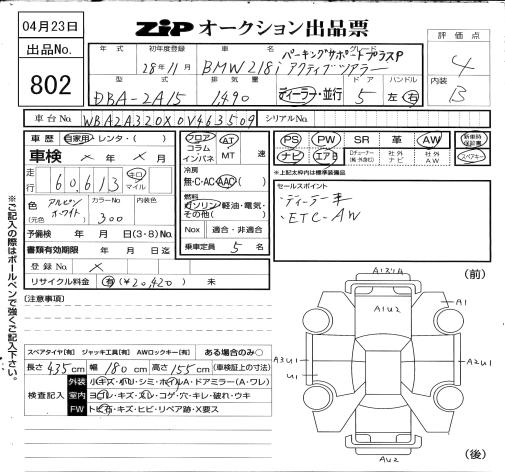 04月23日
ZiP オークション出品票
出品No.
802
評価点
4
内装
B
年式
初年度登録
28年11月
車名
BMW218i
グレード
パーキングサポートプラスP
アクティブツアラー
型式
DBA-2A15
排気量
1490
ディーラー・並行
ドア
5
ハンドル
左 右
車台No.
WBA2A320X0V463509
シリアルNo.
車歴 自家用・レンタ・( )
車検 × 年 × 月
走行 60,613 キロ マイル
色(元色) アルピンホワイト
カラーNo 300
内装色
予備検 年 月 日(3・8)No.
書類有効期限 年 月 日迄
登録No. ×
リサイクル料金 有(¥20,420) 未
フロア
コラム
インパネ
AT
MT
速
冷房
無・C・AC・AAC( )
燃料
ガソリン・軽油・電気・
その他( )
Nox 適合・非適合
乗車定員 5 名
PS PW SR 革 AW
ナビ エアB
社外ナビ
社外AW
新車時保証書
スペアキー
※上記太枠内は標準装備品
セールスポイント
・ディーラー車
・ETC・AW
[注意事項]
スペアタイヤ[有] ジャッキ工具[有] AWロックキー[有] ある場合のみ○
長さ 435cm 幅 180cm 高さ 155cm (車検証上の寸法)
検査記入
外装 小キズ・小U・シミ・ホイルA・ドアミラー(A・ワレ)
室内 ヨゴレ・キズ・スレ・コゲ・穴・キレ・破れ・ウキ
FW トビ石・キズ・ヒビ・リペア跡・X要ス
※ご記入の際はボールペンで強くご記入下さい。
(前)
A1
A1U2
A3U1
U1
A2U1
AU2
(後)